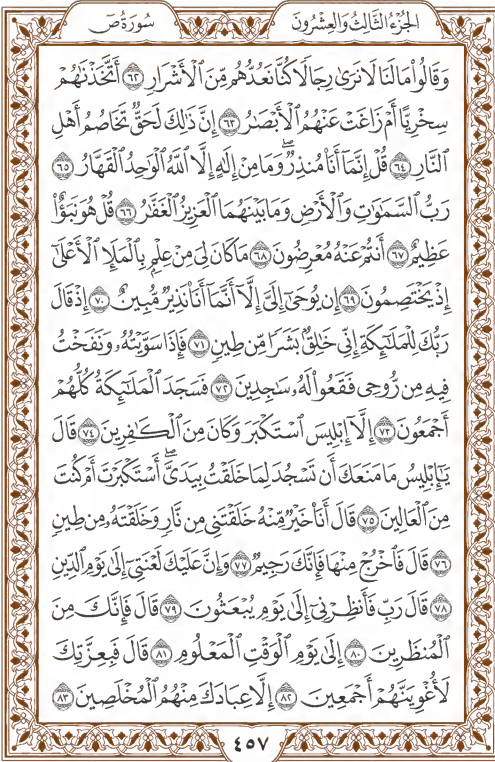 الجُزْءُ الثَّالِثُ وَالعِشْرُونَ
سُورَةُ صٓ
وَقَالُوا۟ مَا لَنَا لَا نَرَىٰ رِجَالًا كُنَّا نَعُدُّهُم مِّنَ ٱلْأَشْرَارِ ٦٢ أَتَّخَذْنَٰهُمْ
سِخْرِيًّا أَمْ زَاغَتْ عَنْهُمُ ٱلْأَبْصَٰرُ ٦٣ إِنَّ ذَٰلِكَ لَحَقٌّ تَخَاصُمُ أَهْلِ
ٱلنَّارِ ٦٤ قُلْ إِنَّمَآ أَنَا۠ مُنذِرٌ ۖ وَمَا مِنْ إِلَٰهٍ إِلَّا ٱللَّهُ ٱلْوَٰحِدُ ٱلْقَهَّارُ ٦٥
رَبُّ ٱلسَّمَٰوَٰتِ وَٱلْأَرْضِ وَمَا بَيْنَهُمَا ٱلْعَزِيزُ ٱلْغَفَّٰرُ ٦٦ قُلْ هُوَ نَبَؤٌا۟
عَظِيمٌ ٦٧ أَنتُمْ عَنْهُ مُعْرِضُونَ ٦٨ مَا كَانَ لِىَ مِنْ عِلْمٍۭ بِٱلْمَلَإِ ٱلْأَعْلَىٰٓ
إِذْ يَخْتَصِمُونَ ٦٩ إِن يُوحَىٰٓ إِلَىَّ إِلَّآ أَنَّمَآ أَنَا۠ نَذِيرٌ مُّبِينٌ ٧٠ إِذْ قَالَ
رَبُّكَ لِلْمَلَٰٓئِكَةِ إِنِّى خَٰلِقٌۢ بَشَرًا مِّن طِينٍ ٧١ فَإِذَا سَوَّيْتُهُۥ وَنَفَخْتُ
فِيهِ مِن رُّوحِى فَقَعُوا۟ لَهُۥ سَٰجِدِينَ ٧٢ فَسَجَدَ ٱلْمَلَٰٓئِكَةُ كُلُّهُمْ
أَجْمَعُونَ ٧٣ إِلَّآ إِبْلِيسَ ٱسْتَكْبَرَ وَكَانَ مِنَ ٱلْكَٰفِرِينَ ٧٤ قَالَ
يَٰٓإِبْلِيسُ مَا مَنَعَكَ أَن تَسْجُدَ لِمَا خَلَقْتُ بِيَدَىَّ ۖ أَسْتَكْبَرْتَ أَمْ كُنتَ
مِنَ ٱلْعَالِينَ ٧٥ قَالَ أَنَا۠ خَيْرٌ مِّنْهُ ۖ خَلَقْتَنِى مِن نَّارٍ وَخَلَقْتَهُۥ مِن طِينٍ
٧٦ قَالَ فَٱخْرُجْ مِنْهَا فَإِنَّكَ رَجِيمٌ ٧٧ وَإِنَّ عَلَيْكَ لَعْنَتِىٓ إِلَىٰ يَوْمِ ٱلدِّينِ
٧٨ قَالَ رَبِّ فَأَنظِرْنِىٓ إِلَىٰ يَوْمِ يُبْعَثُونَ ٧٩ قَالَ فَإِنَّكَ مِنَ
ٱلْمُنظَرِينَ ٨٠ إِلَىٰ يَوْمِ ٱلْوَقْتِ ٱلْمَعْلُومِ ٨١ قَالَ فَبِعِزَّتِكَ
لَأُغْوِيَنَّهُمْ أَجْمَعِينَ ٨٢ إِلَّا عِبَادَكَ مِنْهُمُ ٱلْمُخْلَصِينَ ٨٣
٤٥٧